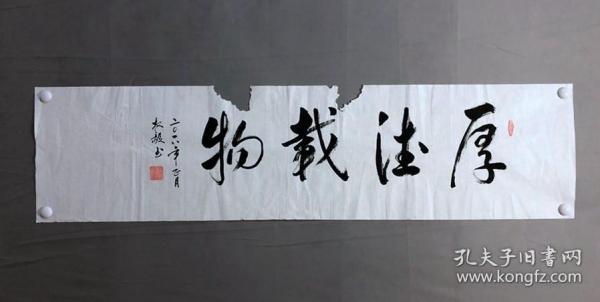 厚德载物
二〇一八年正月
孔夫子旧书网
www.kongfz.com